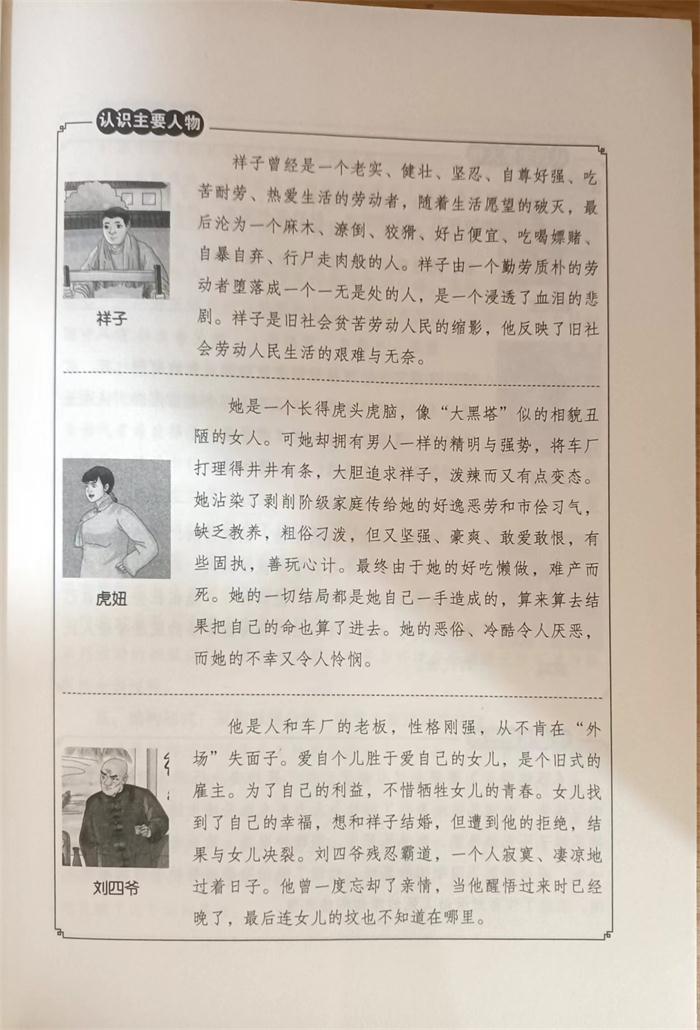 认识主要人物
祥子曾经是一个老实、健壮、坚忍、自尊好强、吃
苦耐劳、热爱生活的劳动者，随着生活愿望的破灭，最
后沦为一个麻木、潦倒、狡猾、好占便宜、吃喝嫖赌、
自暴自弃、行尸走肉般的人。祥子由一个勤劳质朴的劳
动者堕落成一个一无是处的人，是一个浸透了血泪的悲
剧。祥子是旧社会贫苦劳动人民的缩影，他反映了旧社
会劳动人民生活的艰难与无奈。
祥子
她是一个长得虎头虎脑，像“大黑塔”似的相貌丑
陋的女人。可她却拥有男人一样的精明与强势，将车厂
打理得井井有条，大胆追求祥子，泼辣而又有点变态。
她沾染了剥削阶级家庭传给她的好逸恶劳和市侩习气，
缺乏教养，粗俗刁泼，但又坚强、豪爽、敢爱敢恨，有
些固执，善玩心计。最终由于她的好吃懒做，难产而
死。她的一切结局都是她自己一手造成的，算来算去结
果把自己的命也算了进去。她的恶俗、冷酷令人厌恶，
而她的不幸又令人怜悯。
虎妞
他是人和车厂的老板，性格刚强，从不肯在“外
场”失面子。爱自个儿胜于爱自己的女儿，是个旧式的
雇主。为了自己的利益，不惜牺牲女儿的青春。女儿找
到了自己的幸福，想和祥子结婚，但遭到他的拒绝，结
果与女儿决裂。刘四爷残忍霸道，一个人寂寞、凄凉地
过着日子。他曾一度忘却了亲情，当他醒悟过来时已经
晚了，最后连女儿的坟也不知道在哪里。
刘四爷